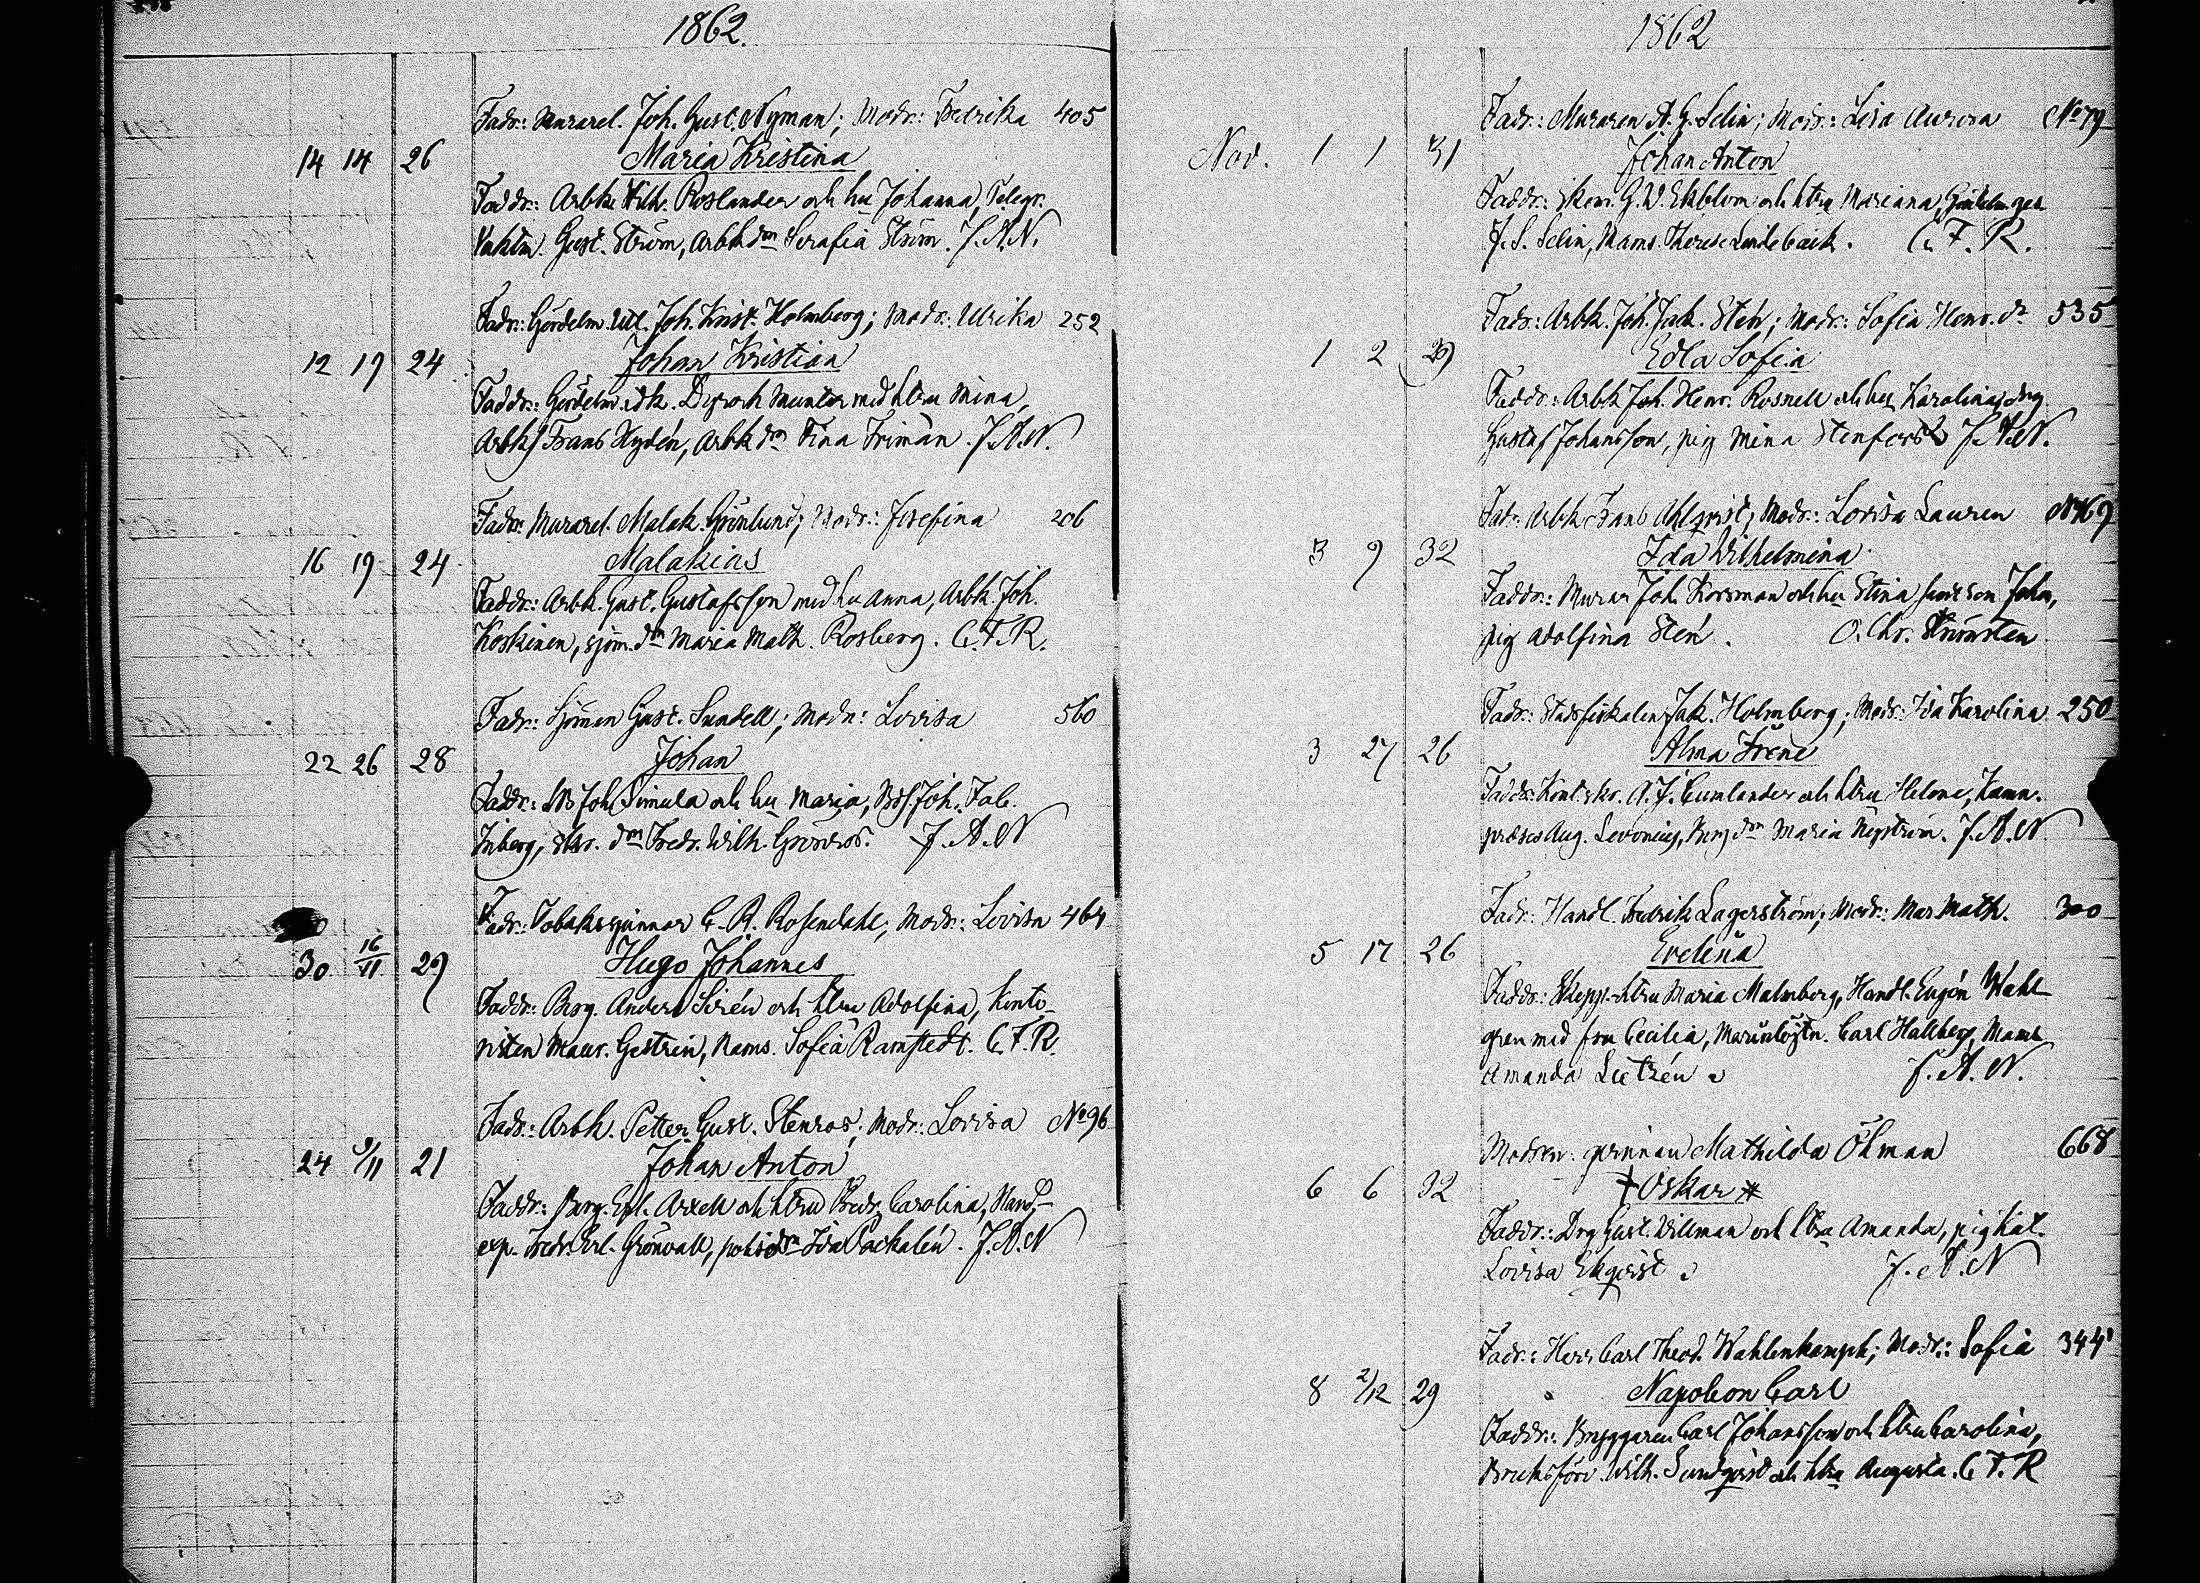 1862.
Fadr: Murarel. Joh. Gust. Nyman; Modr: Fredrika 405
14 14 26 Maria Kristina
Faddr: Arbk Wilh. Roslander och hu Johanna, Telegr.
Vaktm. Gust. Ström, Arbk dn Serafia Ström. J.A.N.
Fadr: Gördelm. Utl. Joh. Krist. Holmberg; Modr: Ulrika 252
12 19 24 Johan Kristian
Faddr: Gördelm. och Munter med hstru Mina,
Arbk Frans Hydén, Arbk dn Fina Friman. J.A.N.
Fadr: Murarel. Malak. Grönlund; Modr: Josefina 206
16 19 24 Malakias
Faddr: Arbk. Gust. Gustafsson med hu Anna, Arbk. Joh.
Koskinen, sjöm. dn Maria Math. Rosberg. C.F.R.
Fadr: Sjöman Gust. Sundell; Modr: Lovisa 560
22 26 28 Johan
Faddr: Joh. Simula och hu Maria, Joh. Fab.
Inberg, dn Fredr. Wilh. Grönroos. J.A.N
Fadr: Tobaksspinnar C. R. Rosendahl; Modr: Lovisa 464
30 16/11 29 Hugo Johannes
Faddr: Borg. Anders Sirén och hstru Adolfina, Konto-
risten Maur. Gestrin, Mams. Sofia Ramstedt. C.F.R.
Fadr: Arbk. Petter Gust. Stenros; Modr: Lovisa No 96
24 9/11 21 Johan Anton
Faddr: Borg. Axell och hstru Fredr. Carolina, Hand.-
exp. Fredr. Grönvall, dn Ida Packalén. J.A.N
1862
Fadr: Muraren A. G. Selin; Modr: Lisa Aurora No 79
Nov. 1 1 31 Johan Anton
Faddr: G. W. Ekblom och hstru Mariana,
J. S. Selin, Mams. Therese Lindebäck. C.F.R.
Fadr: Arbk. Joh. Jak. Sten; Modr: Sofia Henr. dr 535
1 2 29 Edla Sofia
Faddr: Arbk Joh. Henr. Rosnell och hu Karolina, drg
Gustaf Johansson, pig Mina Stenfors J.A.N.
Fadr: Arbk Frans Ahlqvist; Modr: Lovisa Lauren No 169
3 9 32 Ida Wilhelmina
Faddr: Murar Joh. Korsman och hu Stina John,
pig Adolfina Stén. O. Chr. Strömsten
Fadr: Stadsfiskalen Jak. Holmberg; Modr: Ida Karolina 250
3 27 26 Alma Iréne
Faddr: Kont.skr. A. J. Cumlander och hstru Helene, Kamn.
præses Aug. Levonius, Borg dn Maria Nyström. J.A.N
Fadr: Handl. Fredrik Lagerström; Modr: Mar Math. 300
5 17 26 Evelina
Faddr: Skepp.-hstru Maria Malmberg, Handl. Eugén Wahl
gren med fru Cecilia, Marinlöjtn. Carl Hallberg, Mams
Amanda Lutzén J.A.N.
Modren: qvinnan Mathilda Öhman 668
6 6 32 † Oskar *
Faddr: Drg Gust. Willman och hstru Amanda, pig Kat.
Lovisa Ekqvist J.A.N
Fadr: Herr Carl Theod. Wahlenkampf; Modr: Sofia 344
8 2/12 29 Napoleon Carl
Faddr: Bryggaren Carl Johansson och hstru Carolina,
Bruksförv. Wilh. Sundqvist och hstru Augusta. C F.R